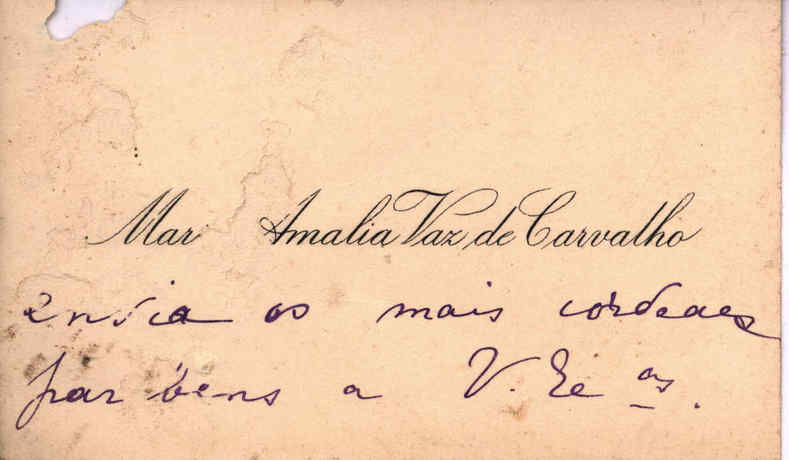 Mar Amalia Vaz de Carvalho
envia os mais cordeaes
parbens a V. Ex.as